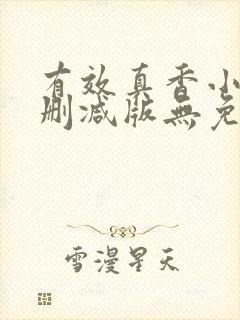 有效真香小
删减版無免
雪漫星天